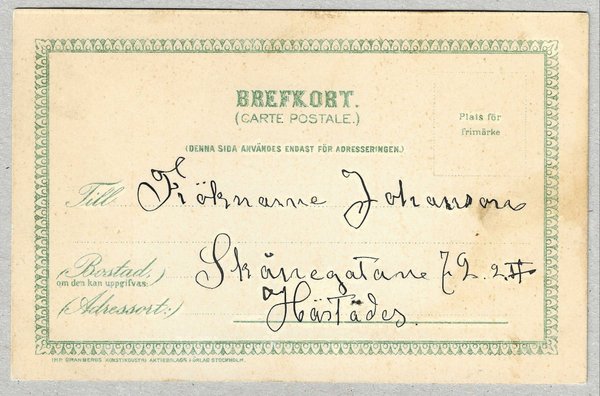 BREFKORT.
(CARTE POSTALE.)
Plats för
frimärke
(DENNA SIDA ANVÄNDES ENDAST FÖR ADRESSERINGEN.)
Till Fröknarne Johanson
(Bostad,)
om den kan uppgifvas:
Skånegatane 72. 2 II
(Adressort:)
Härstädes.
IMP. GRANBERGS KONSTINDUSTRI AKTIEBOLAGS FÖRLAG STOCKHOLM.